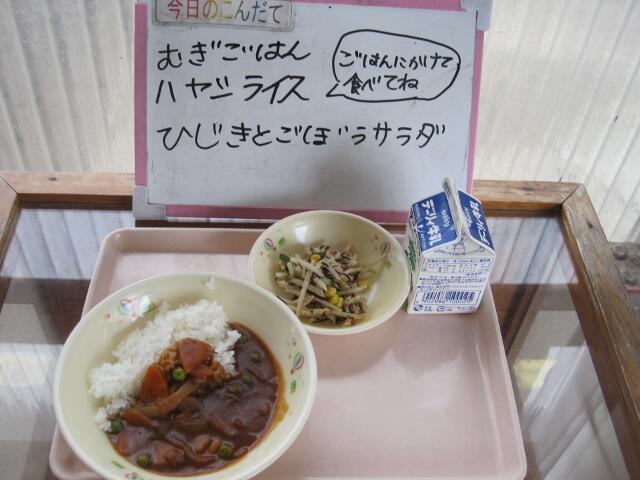 今日のこんだて
むぎごはん
ハヤシライス
ごはんにかけて
食べてね
ひじきとごぼうサラダ
デーリィ牛乳